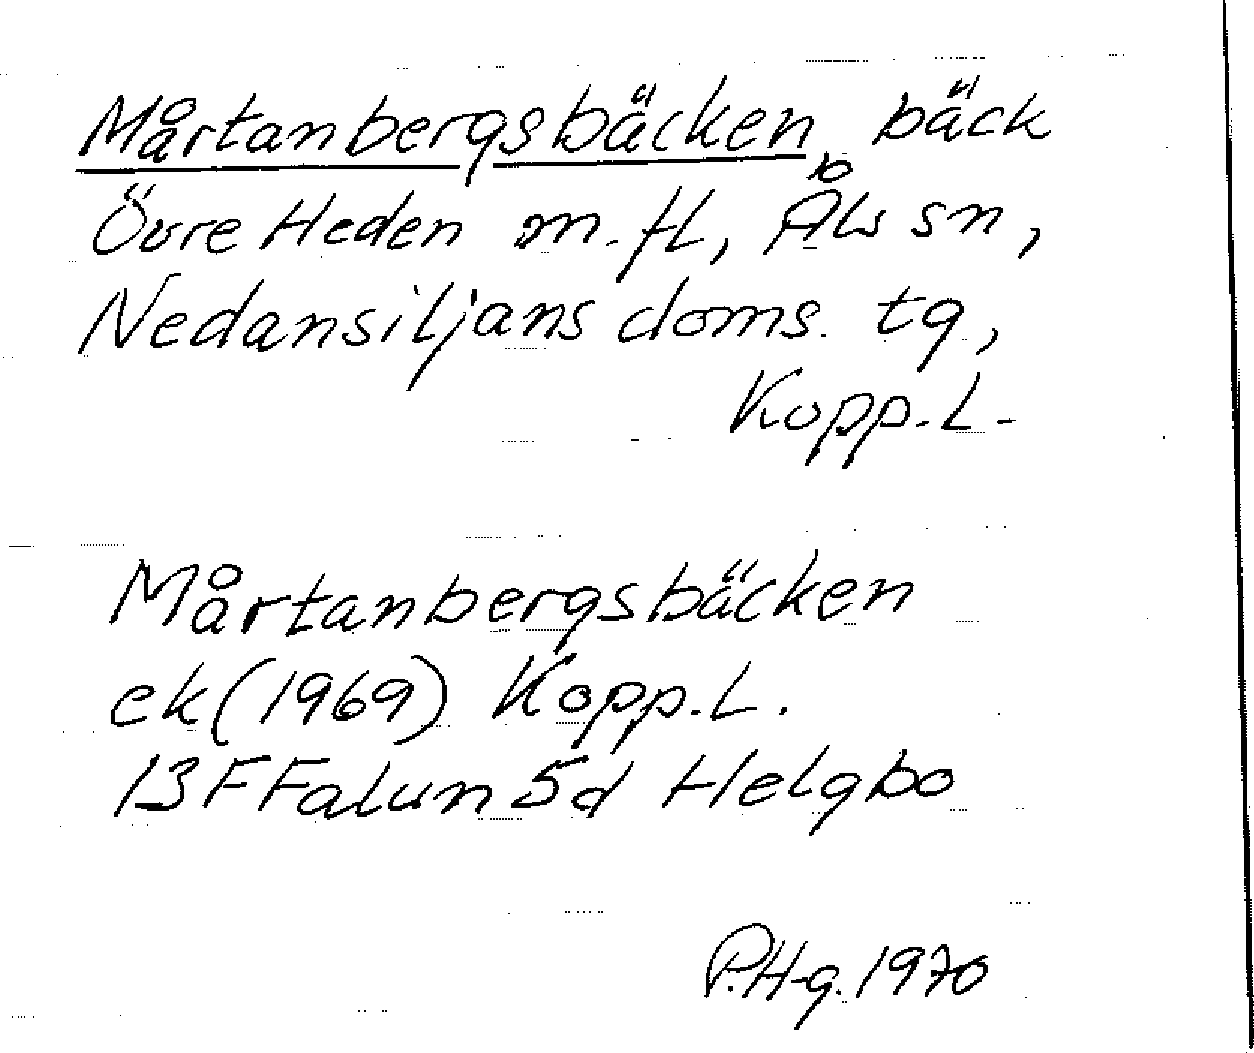 Mårtanbergsbäcken, bäck
Övre Heden m.fl., Åls sn,
Nedansiljans doms. tg,
Kopp.L.
Mårtanbergsbäcken
ek (1969) Kopp.L.
13F Falun 5d Helgbo
P.H-g. 1970